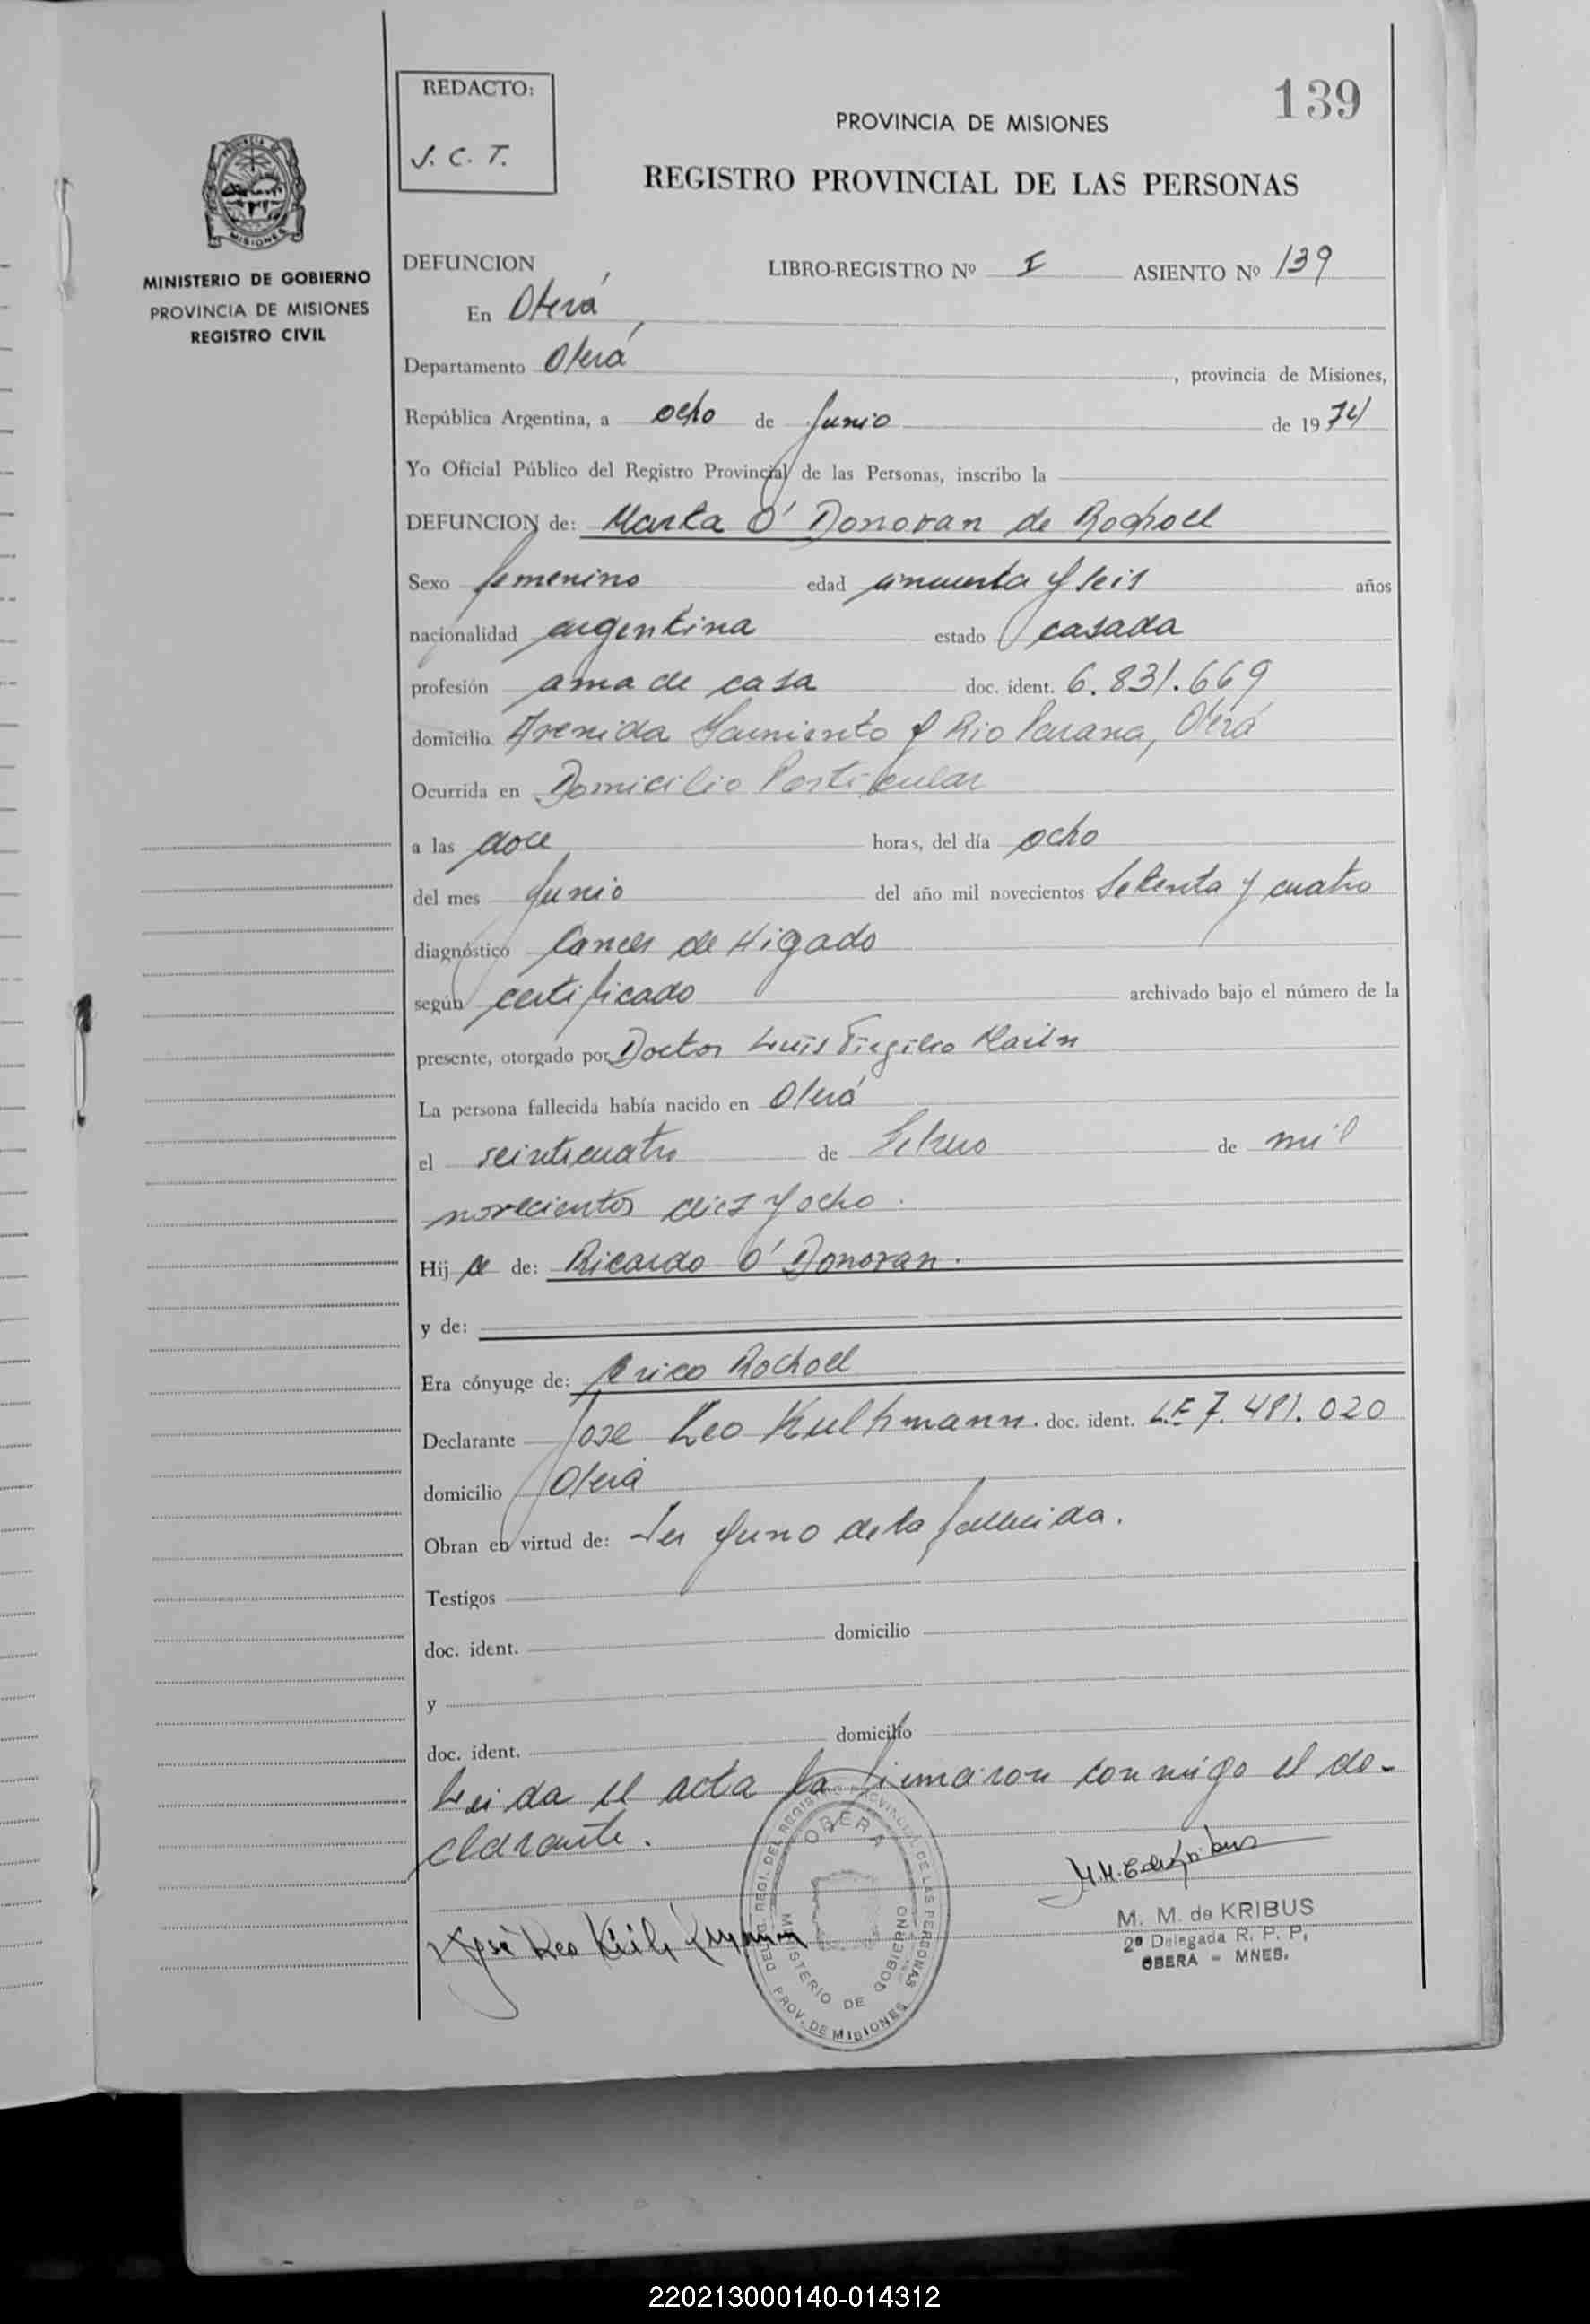 REDACTO:
J. C. T.
139
PROVINCIA DE MISIONES
REGISTRO PROVINCIAL DE LAS PERSONAS
MISIONES
MINISTERIO DE GOBIERNO
PROVINCIA DE MISIONES
REGISTRO CIVIL
DEFUNCION LIBRO-REGISTRO Nº I ASIENTO Nº 139
En Oberá
Departamento Oberá, provincia de Misiones,
República Argentina, a ocho de Junio de 1974
Yo Oficial Público del Registro Provincial de las Personas, inscribo la
DEFUNCION de: Marta O' Donovan de Rocholl
Sexo femenino edad cincuenta y seis años
nacionalidad argentina estado casada
profesión ama de casa doc. ident. 6.831.669
domicilio Avenida Sarmiento y Rio Parana, Oberá
Ocurrida en Domicilio Particular
a las doce horas, del día ocho
del mes Junio del año mil novecientos Setenta y cuatro
diagnóstico Cancer de Higado
según certificado archivado bajo el número de la
presente, otorgado por Doctor Luis Virgilio
La persona fallecida había nacido en Oberá
el veinticuatro de Febrero de mil
novecientos diez y ocho.
Hija de: Ricardo O' Donovan.
y de:
Era cónyuge de: Erico Rocholl
Declarante Jose Leo Kuhlmann. doc. ident. L.E 7.481.020
domicilio Oberá
Obran en virtud de: Ser Yerno de la fallecida.
Testigos
doc. ident. domicilio
y
doc. ident. domicilio
Leida el acta la firmaron conmigo el de-
clarante.
DELEG. REGI. DEL REGISTRO PROVINCIAL DE LAS PERSONAS
OBERA
MINISTERIO DE GOBIERNO
PROV. DE MISIONES
M. M. de KRIBUS
2ª Delegada R. P. P,
OBERA - MNES.
José Leo
220213000140-014312